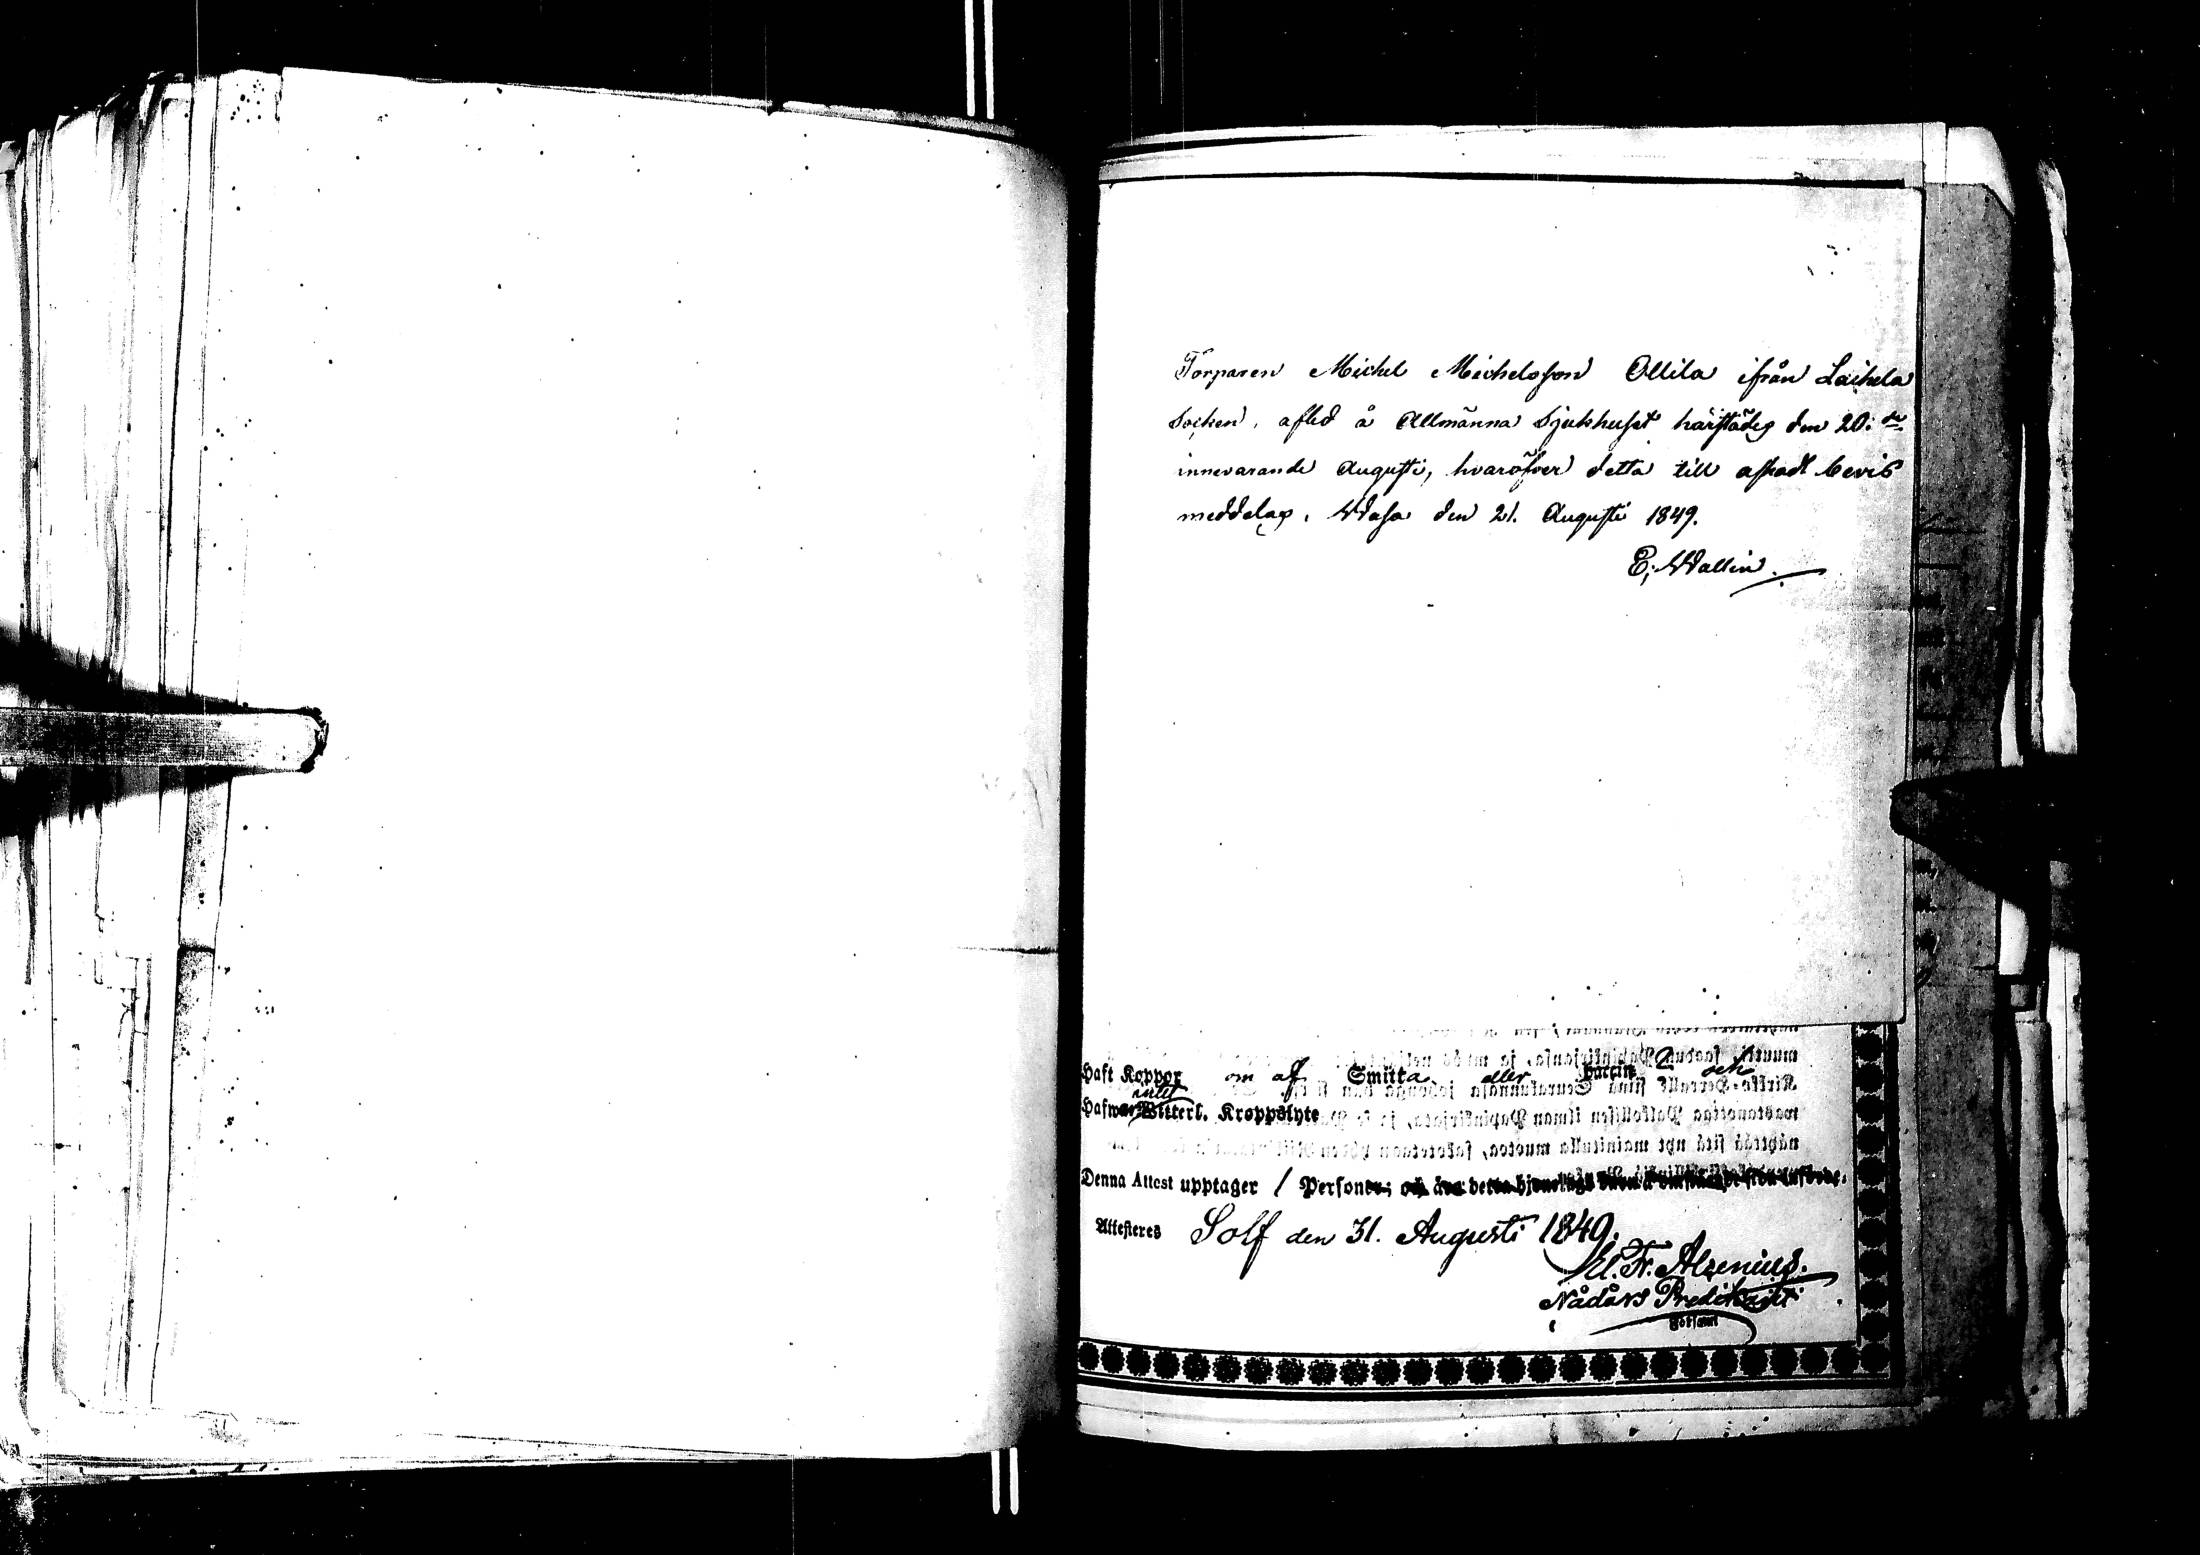 Torparen Michel Michelsson Ollila ifrån Laihela
Socken, afled å Allmänna Sjukhuset härstädes den 20:de
innevarande Augusti, hvaröfver detta till äskadt bevis
meddelas. Wasa den 21. Augusti 1849.
E; Wallin.
Haft Koppor om af Smitta eller Vaccin och
Hafwer intet Witterl. Kroppslyte
Denna Attest upptager 1 Person
Attesteres Solf den 31. Augusti 1849.
Fr. Alcenius.
Nådårs Predikant